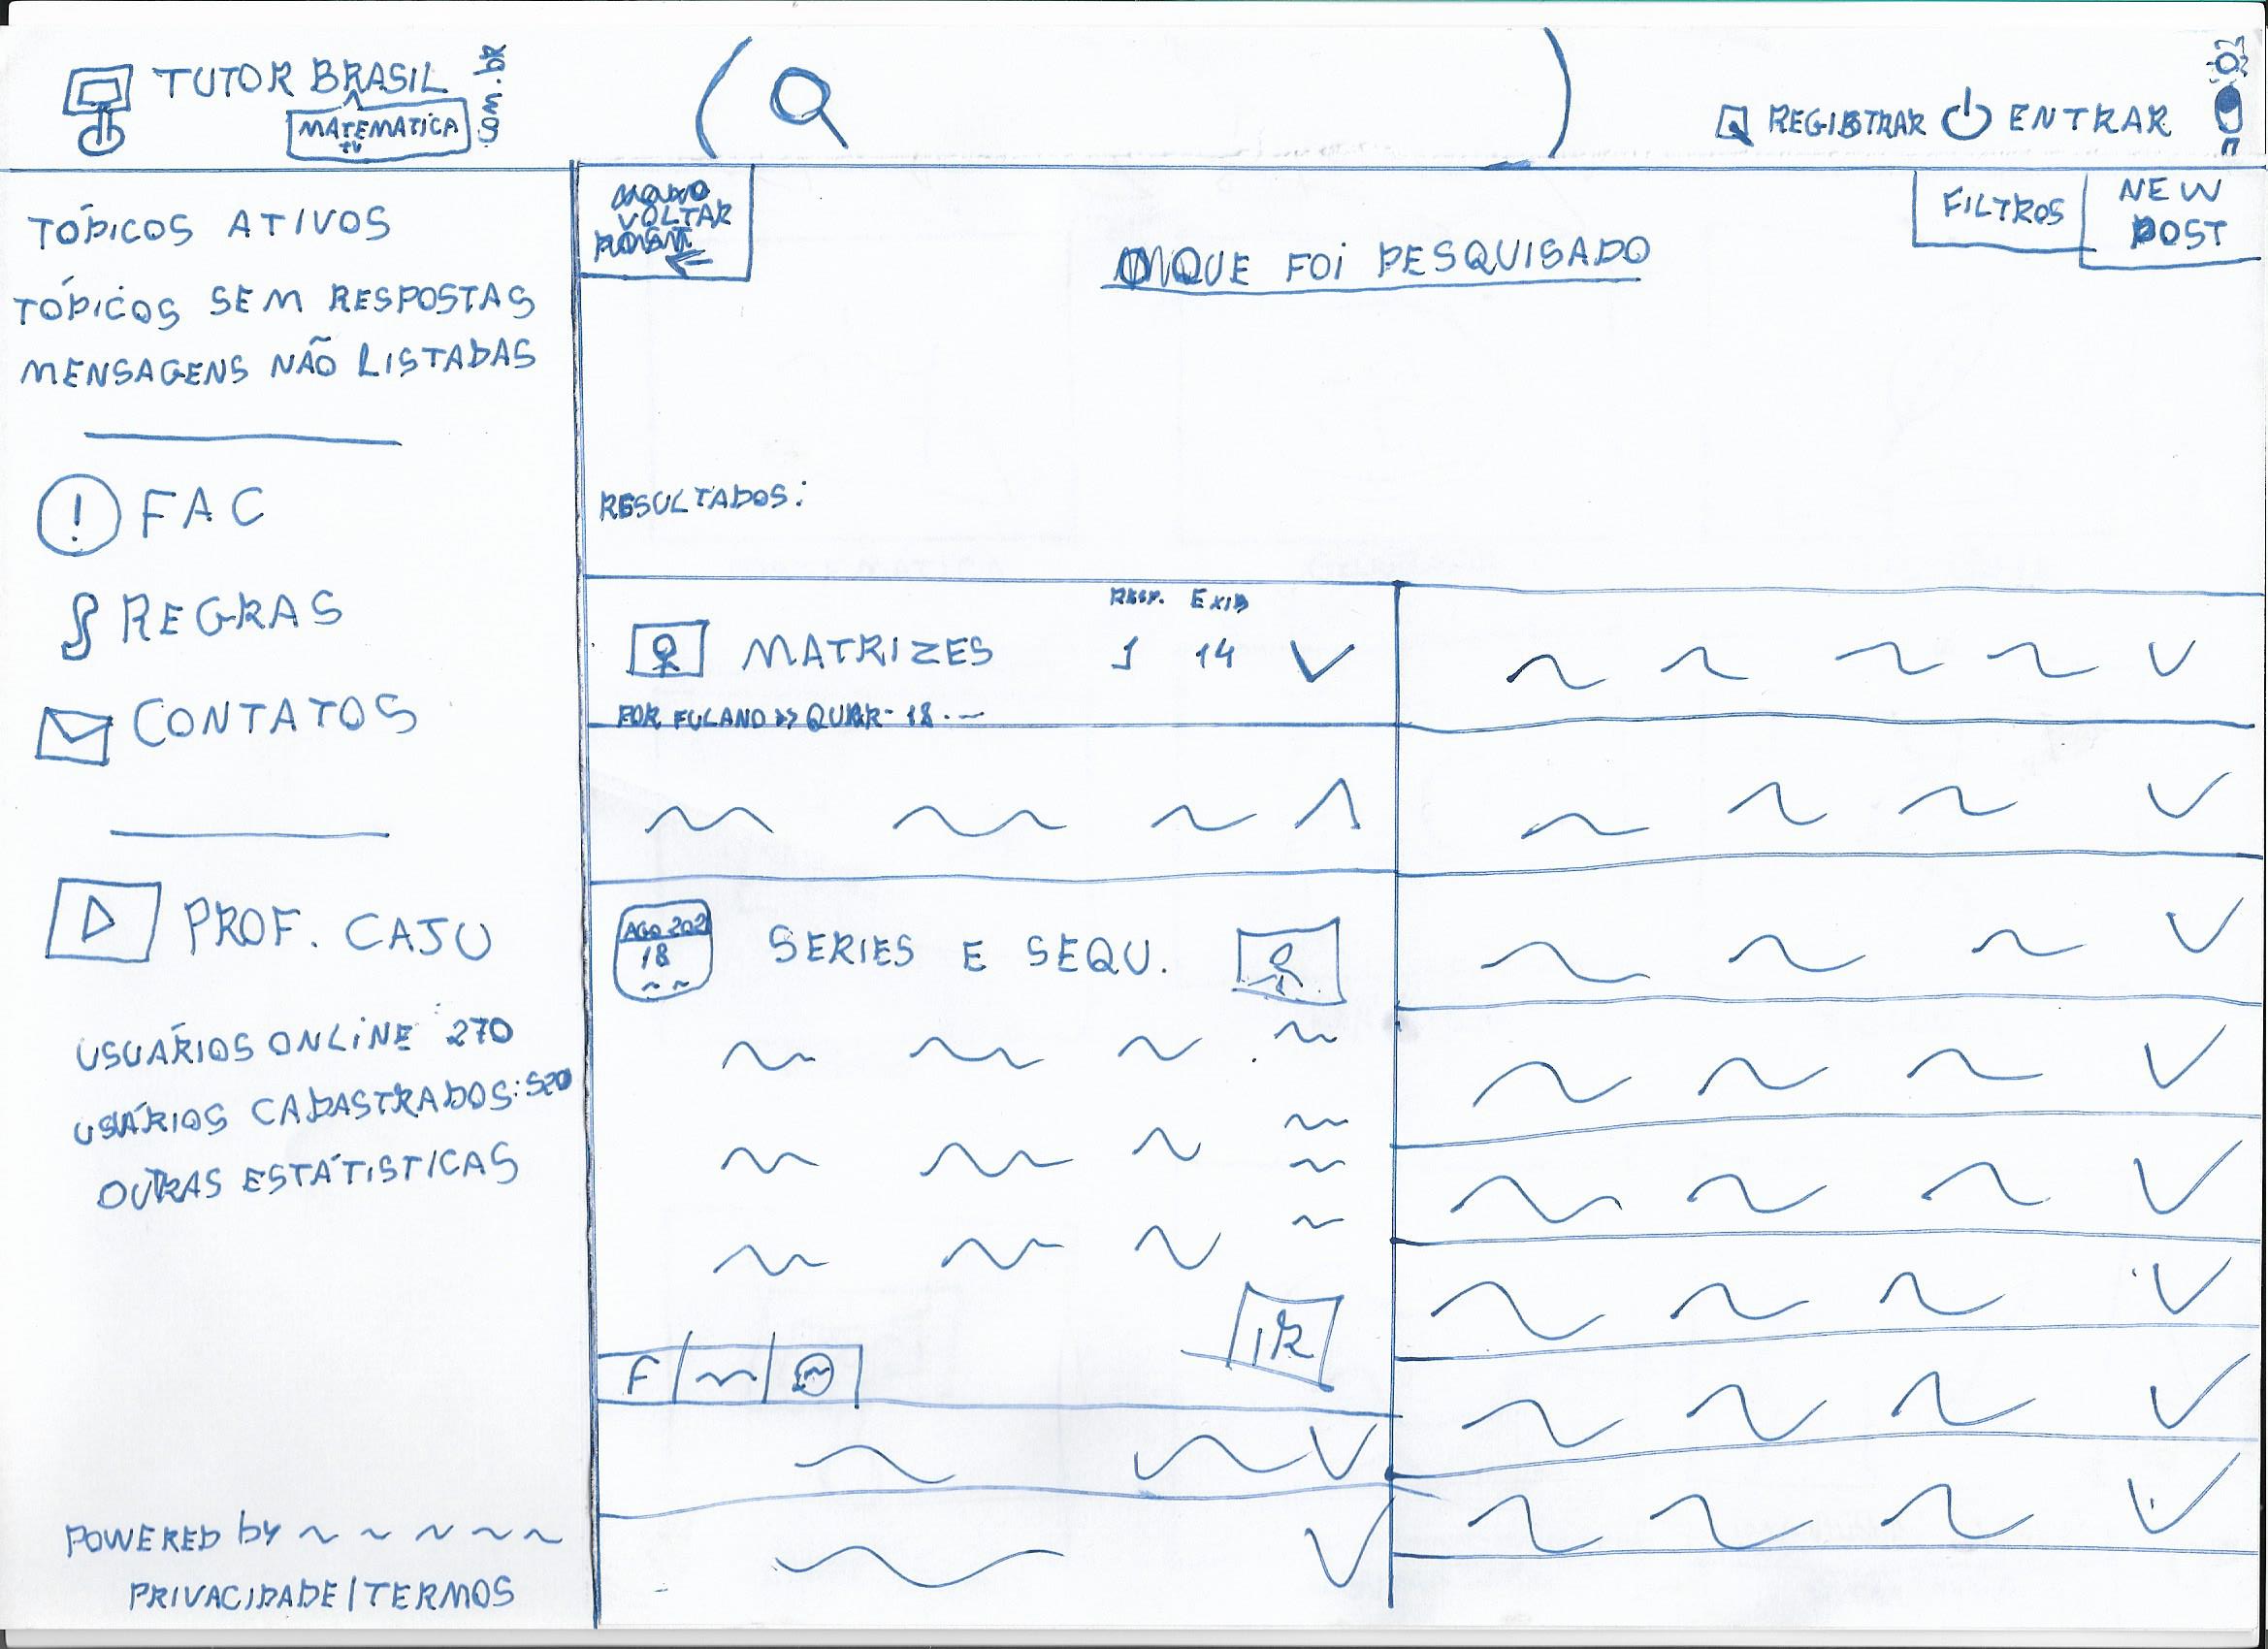 TUTOR BRASIL
.com.br
MATEMATICA
TV
REGISTRAR
ENTRAR
TÓPICOS ATIVOS
TÓPICOS SEM RESPOSTAS
MENSAGENS NÃO LISTADAS
! FAC
REGRAS
CONTATOS
PROF. CAJU
USUÁRIOS ONLINE : 270
USÁRIOS CADASTRADOS: 520
OUTRAS ESTÁTISTICAS
POWERED by
PRIVACIDADE/TERMOS
VOLTAR
FILTROS
NEW
POST
O QUE FOI PESQUISADO
RESULTADOS:
RESP. EXIB
MATRIZES 1 14
POR FULANO >> QUAR - 18.--
AGO 202
18
SERIES E SEQU.
F
IR